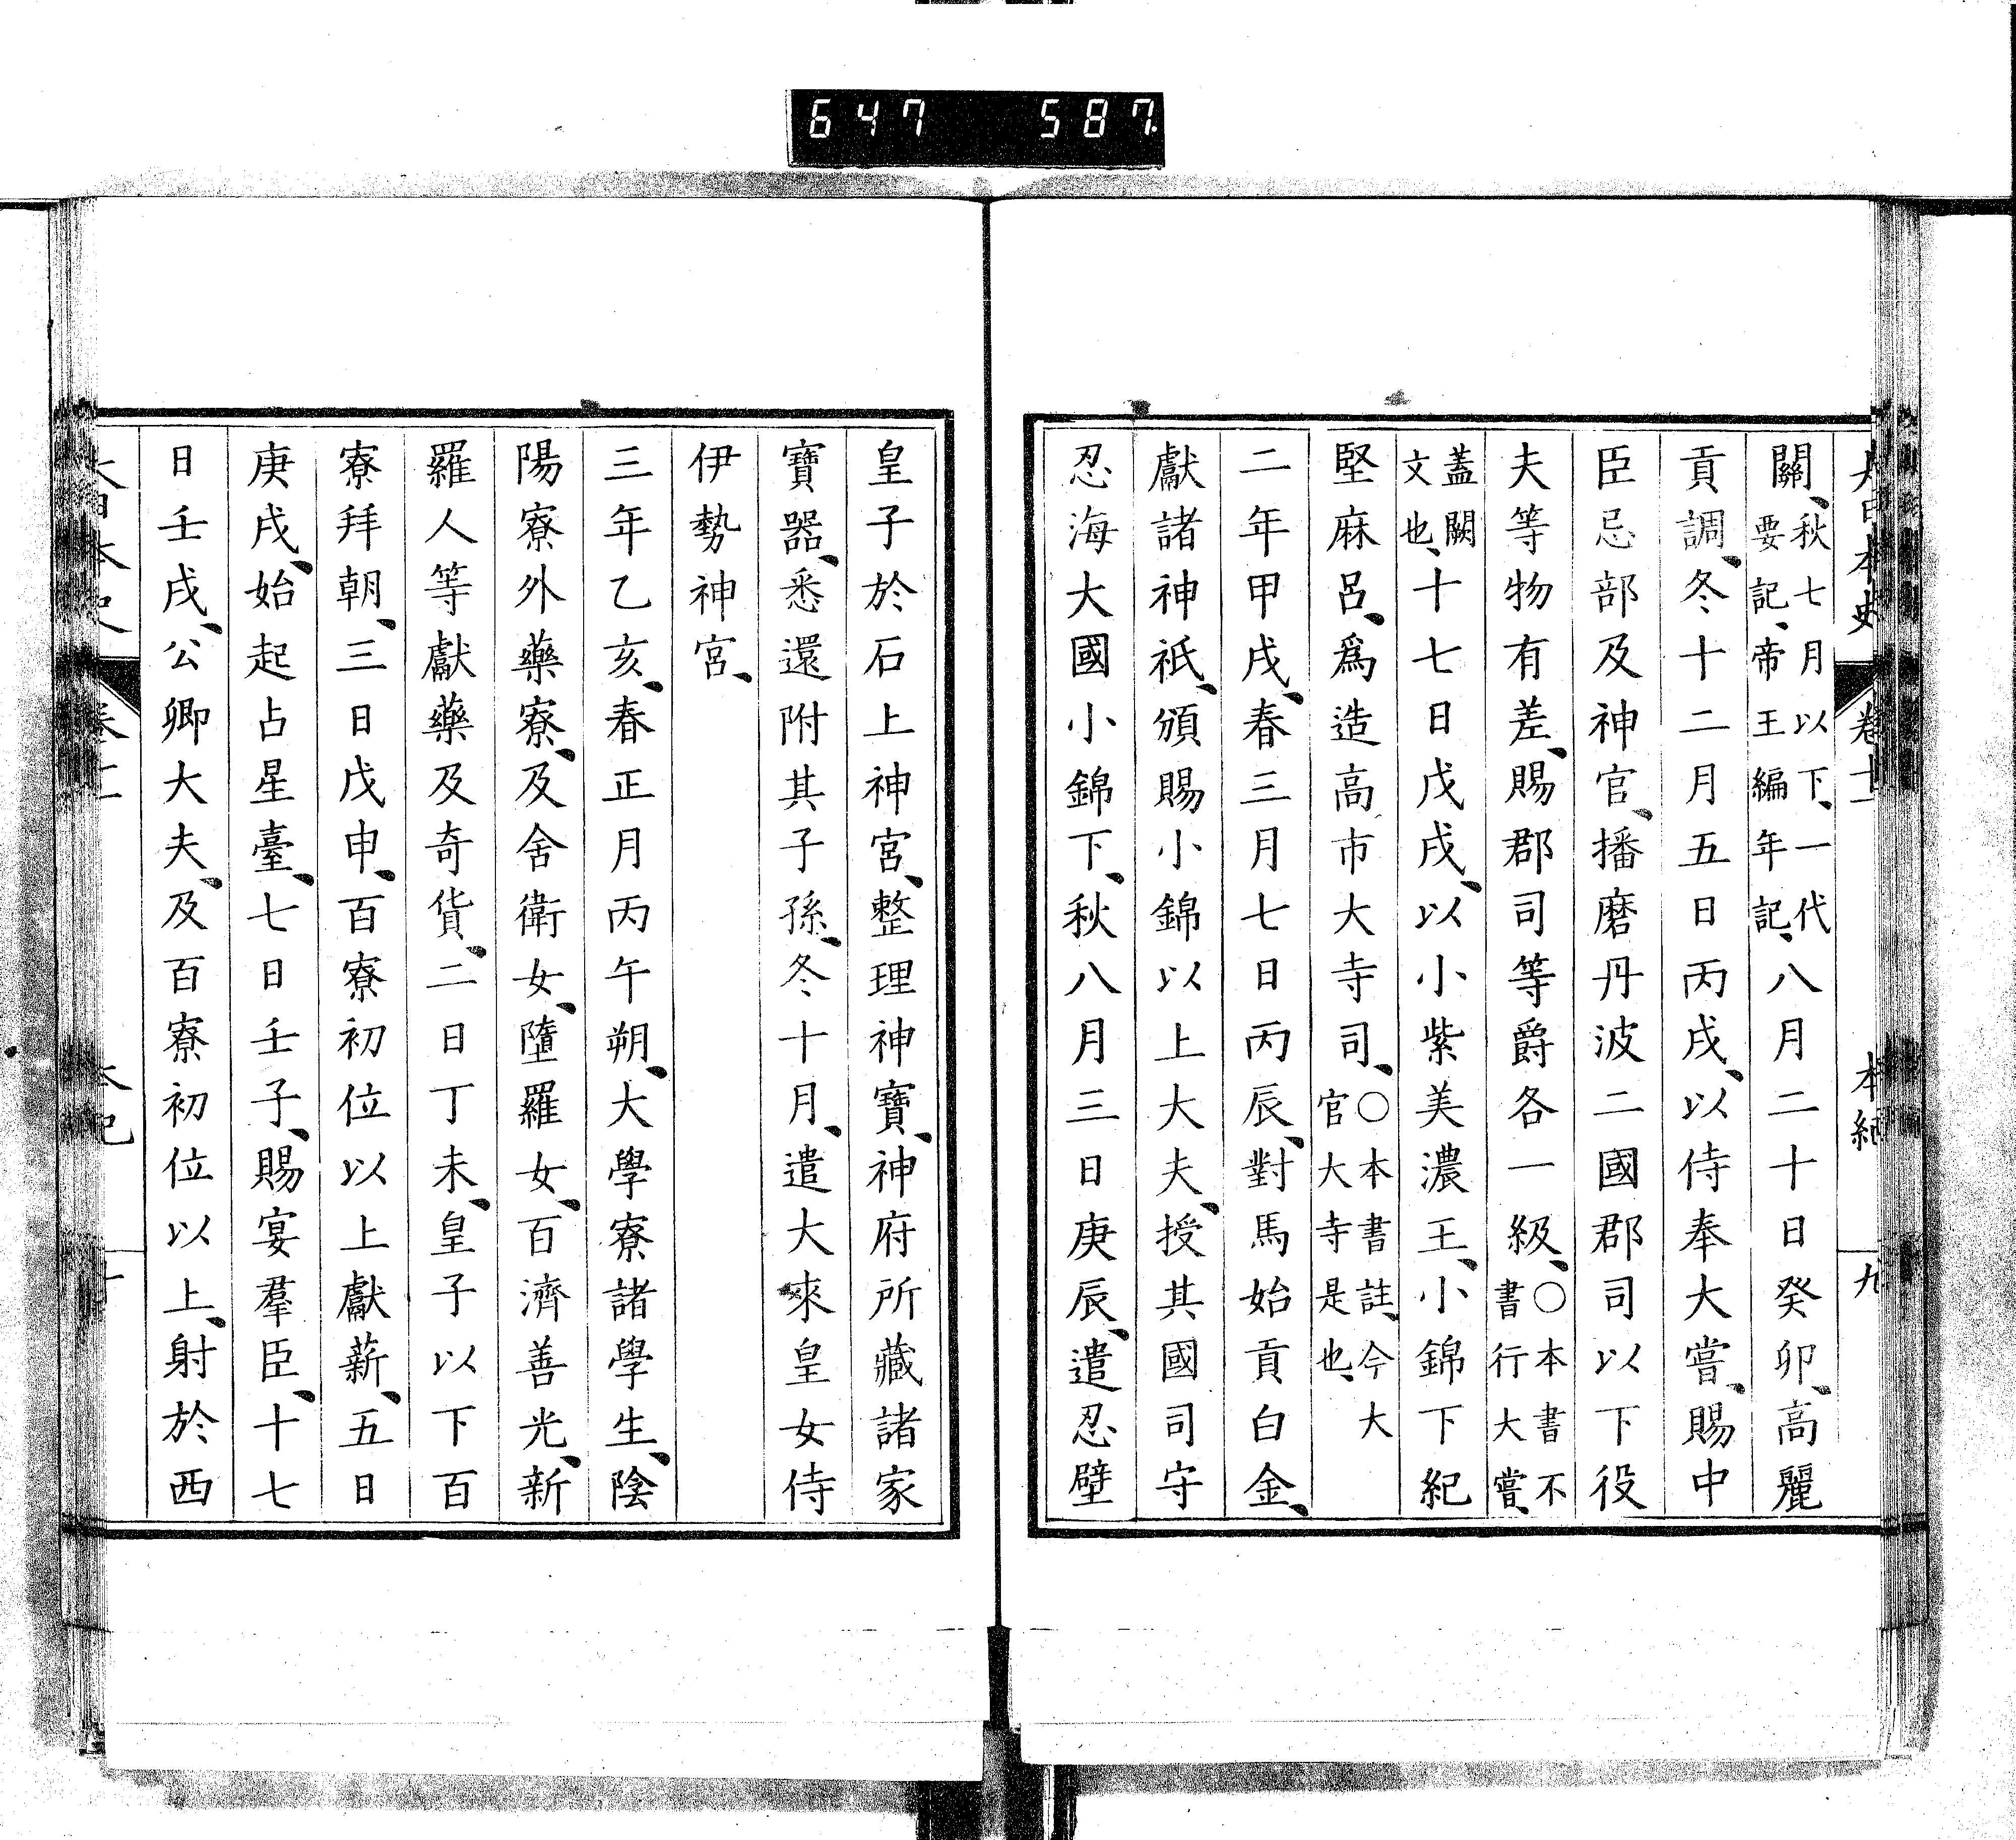 647 587.
大日本史 卷十一 本紀 九
關、秋七月以下、一代要記、帝王編年記、八月二十日癸卯、高麗
貢調、冬十二月五日丙戌、以侍奉大嘗、賜中
臣忌部及神官、播磨丹波二國郡司以下役
夫等物有差、賜郡司等爵各一級、○本書不書行大嘗、
蓋闕文也、十七日戊戌、以小紫美濃王、小錦下紀
堅麻呂、爲造高市大寺司、○本書註、今大官大寺是也、
二年甲戌、春三月七日丙辰、對馬始貢白金、
獻諸神祇、頒賜小錦以上大夫、授其國司守
忍海大國小錦下、秋八月三日庚辰、遣忍壁
皇子於石上神宮、整理神寶、神府所藏諸家
寶器、悉還附其子孫、冬十月、遣大來皇女侍
伊勢神宮、
三年乙亥、春正月丙午朔、大學寮諸學生、陰
陽寮外藥寮、及舍衛女、墮羅女、百濟善光、新
羅人等獻藥及奇貨、二日丁未、皇子以下百
寮拜朝、三日戊申、百寮初位以上獻薪、五日
庚戌、始起占星臺、七日壬子、賜宴羣臣、十七
日壬戌、公卿大夫、及百寮初位以上、射於西